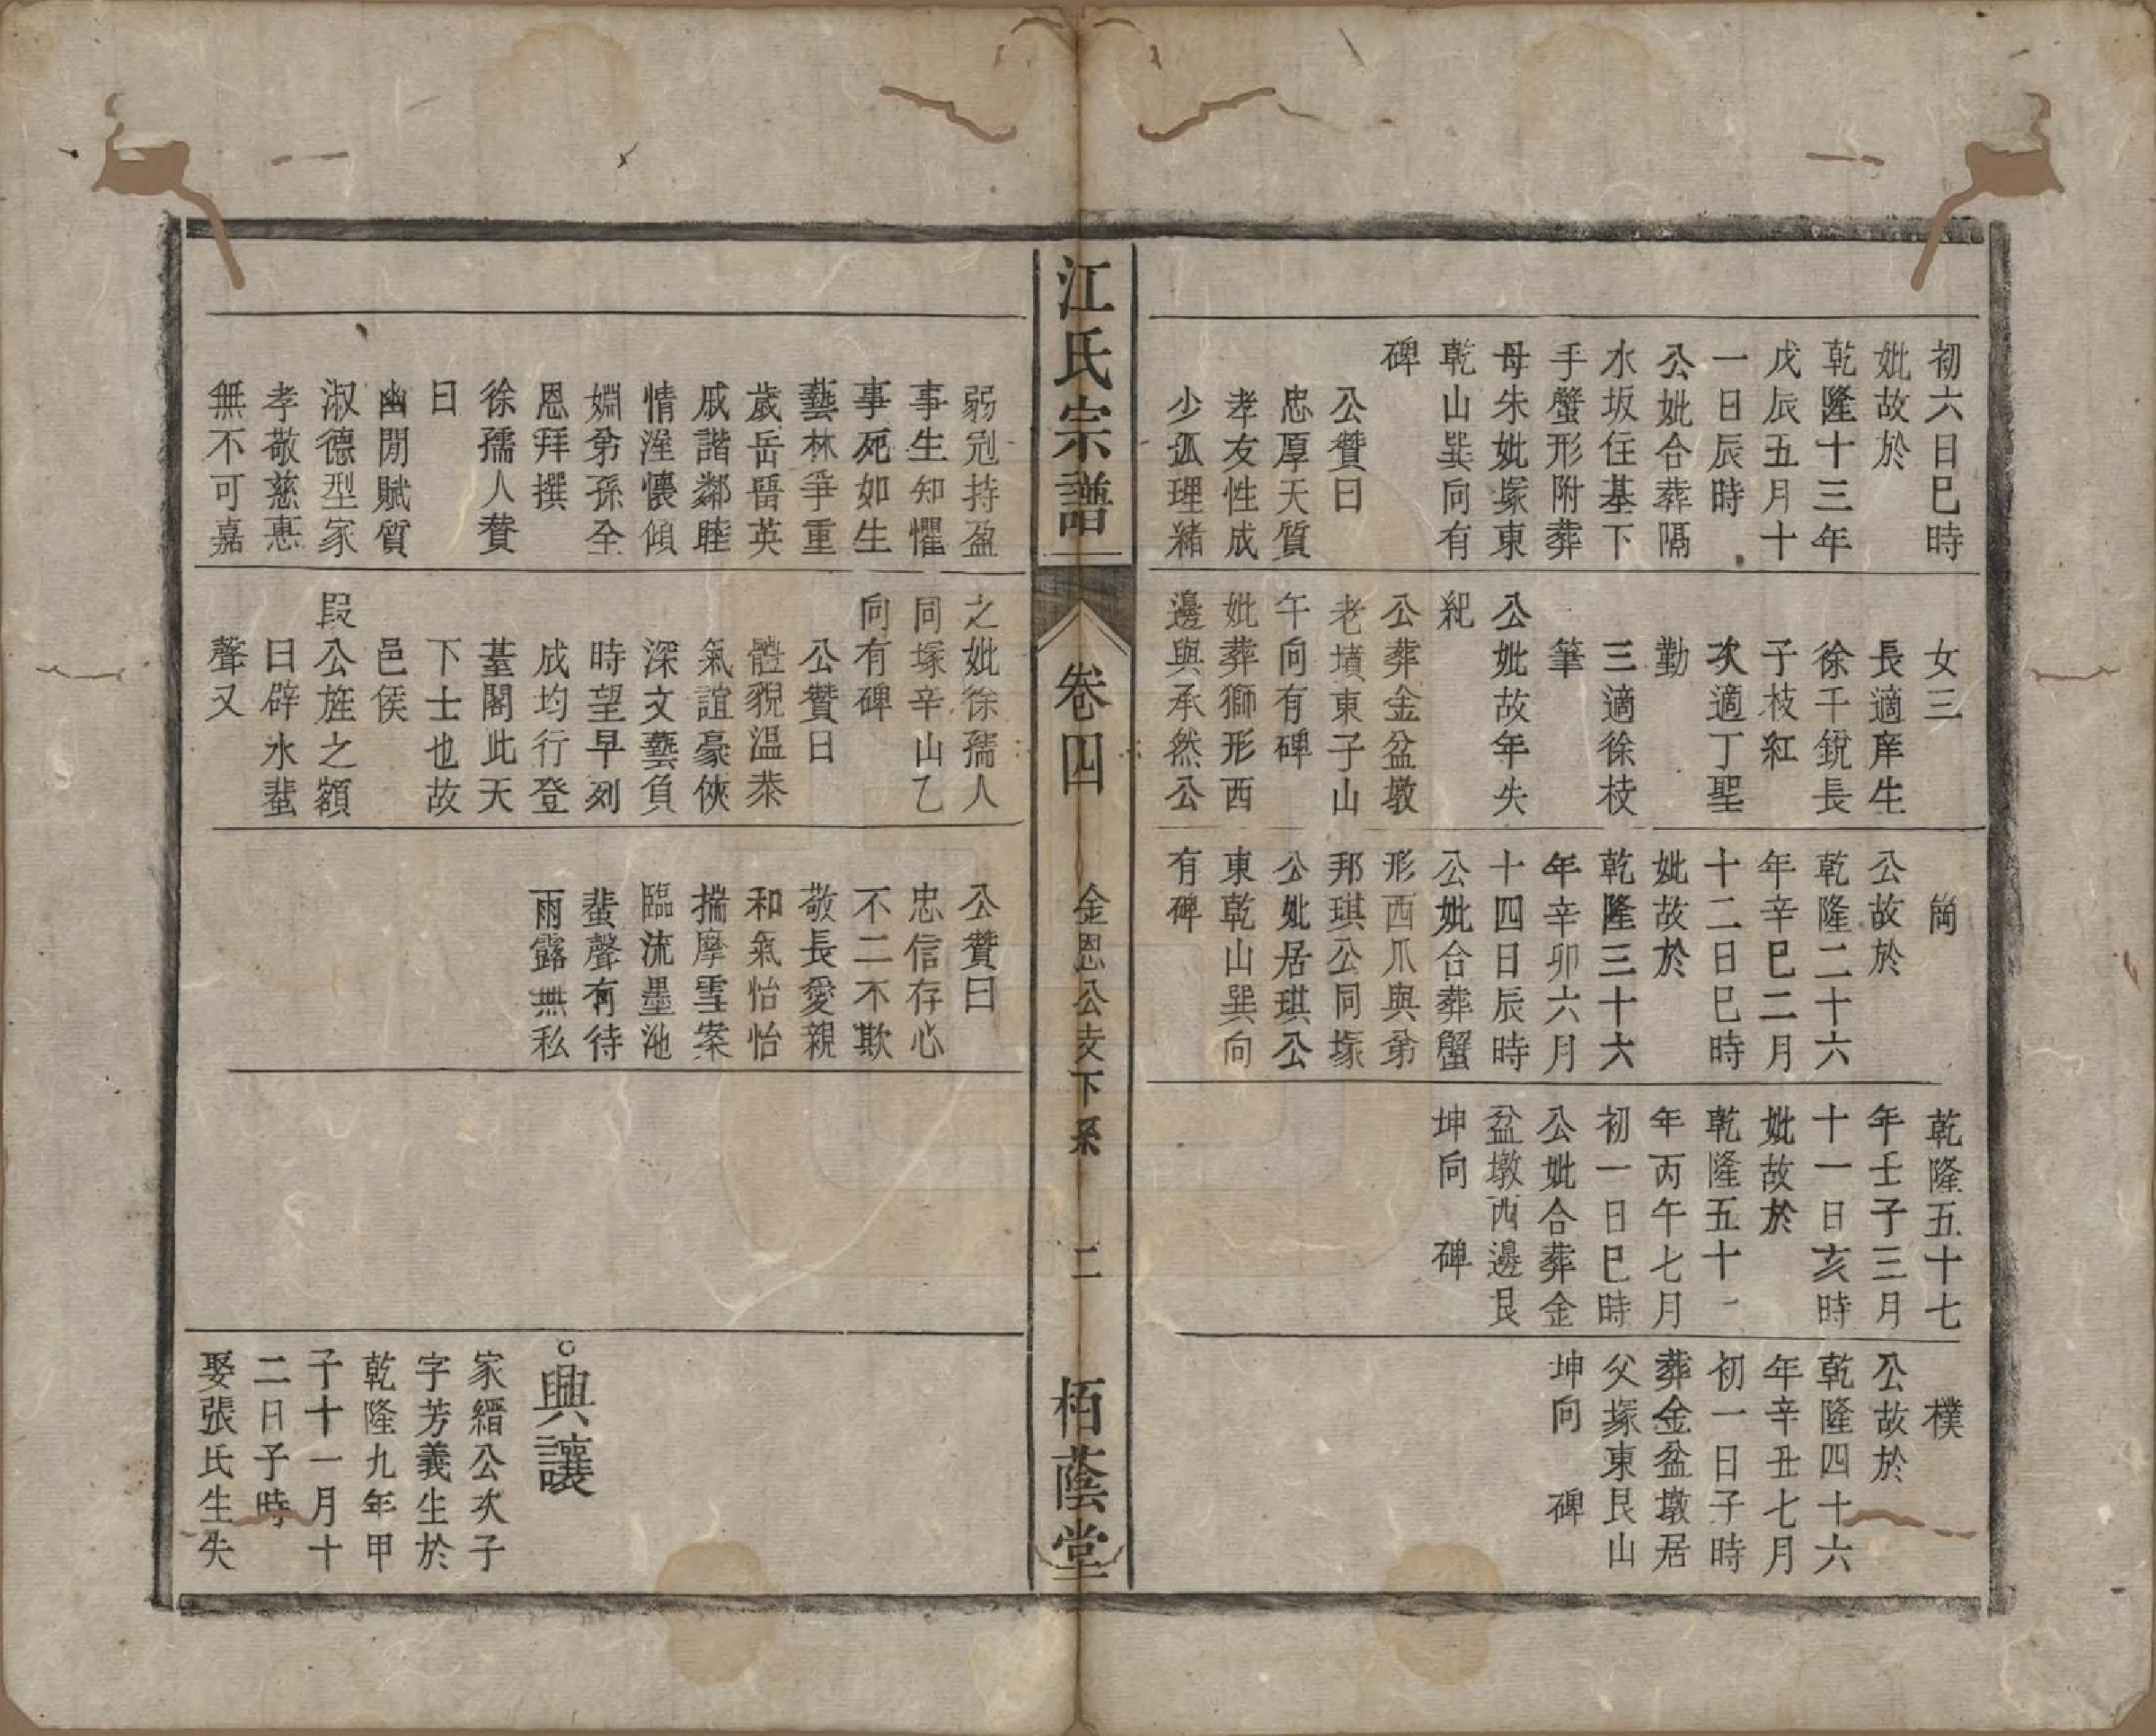 初六日巳時
妣故於
乾隆十三年
戊辰五月十
一日辰時
公妣合葬隔
水坂住基下
手蟹形附葬
母朱妣塚東
乾山巽向有
碑
公贊曰
忠厚天質
孝友性成
少孤理緒
女三
長適庠生
徐千銳長
子枝紅
次適丁聖
勤
三適徐枝
筆
公妣故年失
紀
公葬金盆墩
老墳東子山
午向有碑
妣葬獅形西
邊與承然公
崗
公故於
乾隆二十六
年辛巳二月
十二日巳時
妣故於
乾隆三十六
年辛卯六月
十四日辰時
公妣合葬蟹
形西爪與弟
邦琪公同塚
公妣居琪公
東乾山巽向
有碑
乾隆五十七
年壬子三月
十一日亥時
妣故於
乾隆五十一
年丙午七月
初一日巳時
公妣合葬金
盆墩西邊艮
坤向 碑
樸
公故於
乾隆四十六
年辛丑七月
初一日子時
葬金盆墩居
父塚東艮山
坤向 碑
江氏宗譜
卷四
金恩公支下系 二
栢蔭堂
弱冠持盈
事生知懼
事死如生
藝林爭重
歲岳畱英
戚諧鄰睦
情溼懷傾
婣弟孫全
恩拜撰
徐孺人贊
曰
幽閒賦質
淑德型家
孝敬慈惠
無不可嘉
之妣徐孺人
同塚辛山乙
向有碑
公贊曰
體貌温恭
氣誼豪俠
深文藝負
時望早列
成均行登
䑓閣此天
下士也故
邑侯
段公旌之額
曰辟水蜚
聲又
公贊曰
忠信存心
不二不欺
敬長愛親
和氣怡怡
揣摩雪案
臨流墨池
蜚聲有待
雨露無私
興讓
家縉公次子
字芳義生於
乾隆九年甲
子十一月十
二日子時
娶張氏生失